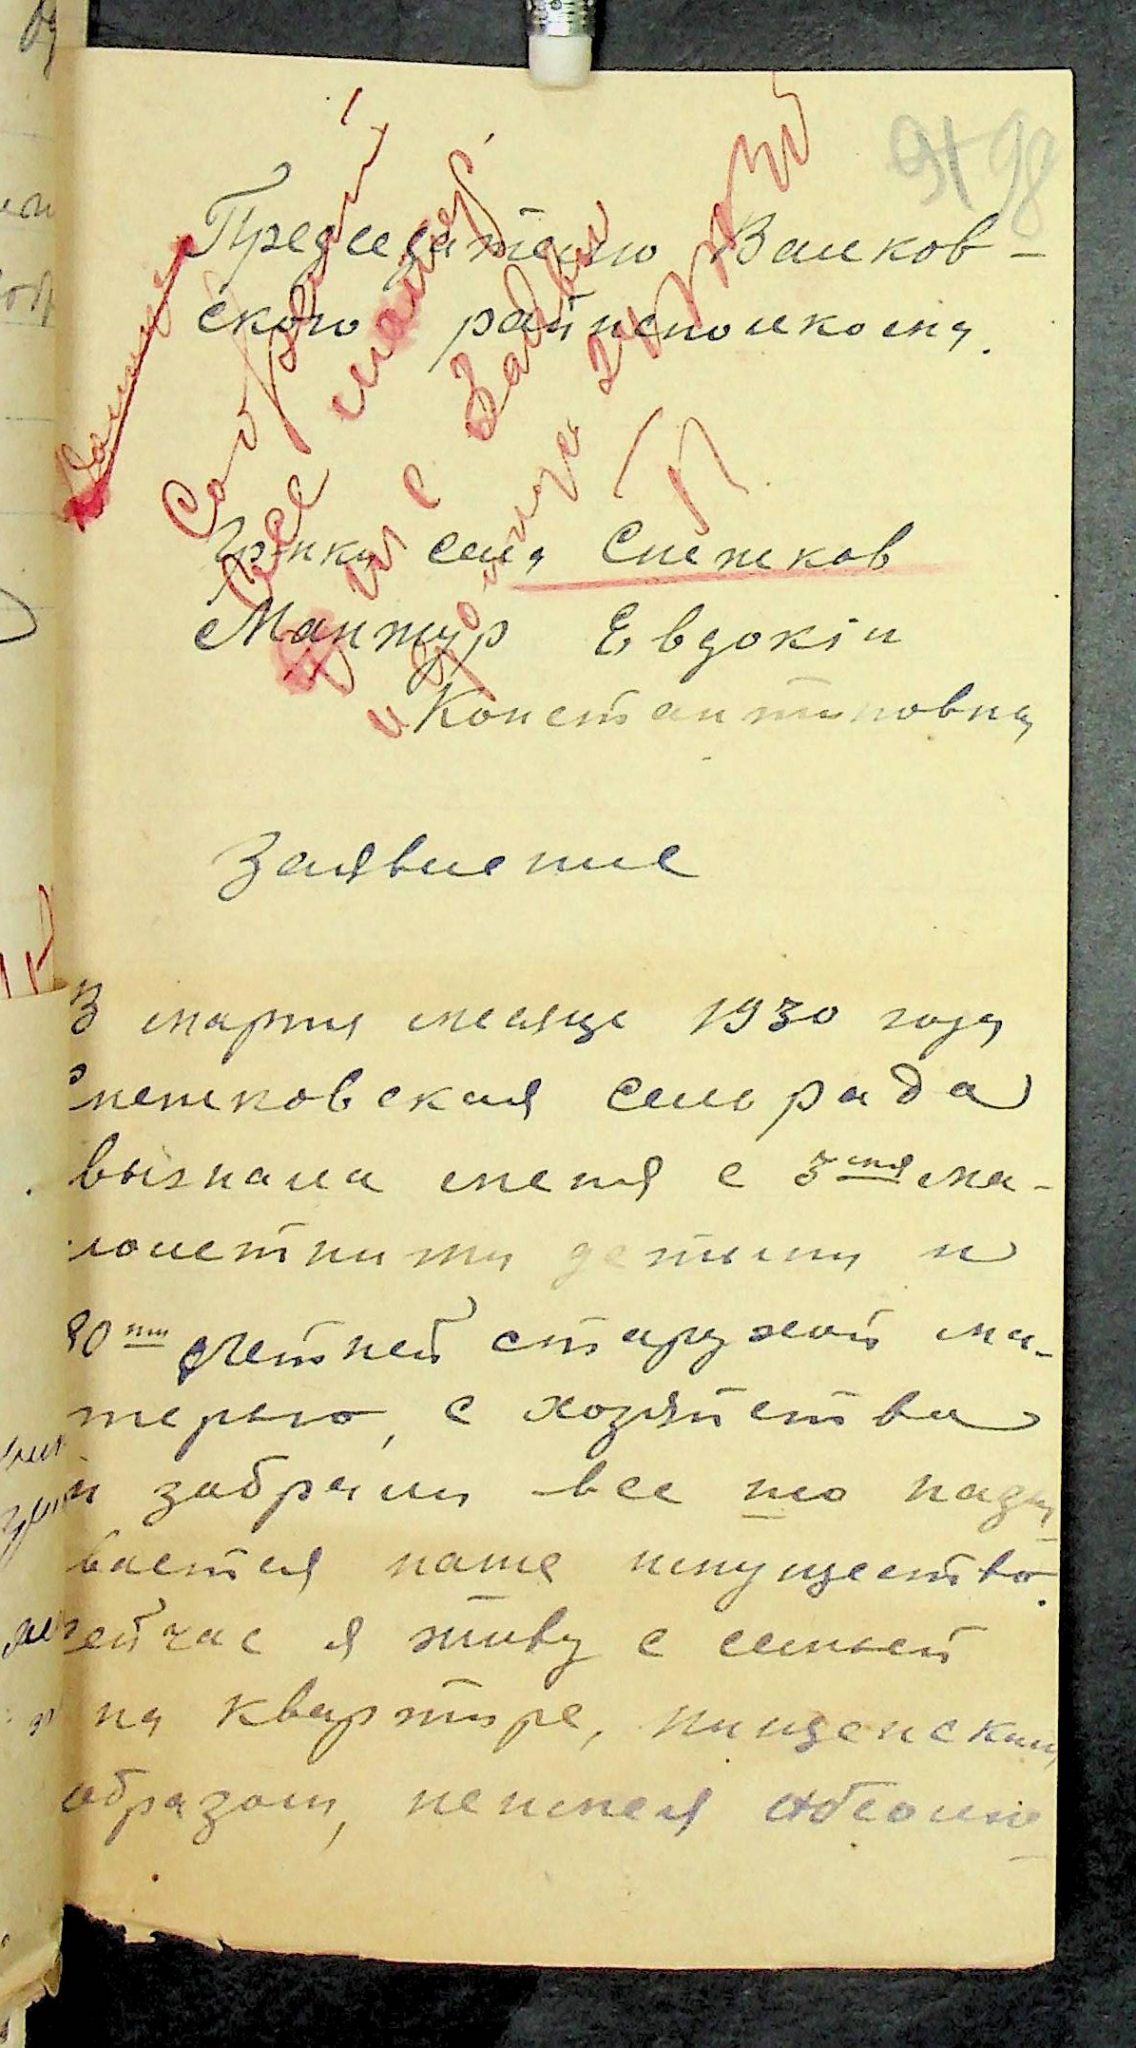 98
Председателю Валков-
ского райисполкома.
Гр-нки села Снежков
Мантур Евдокіи
Константиновна
Заявление
В марте месяце 1930 года
Снежковская сельрада
выгнала меня с 3мя ма-
лолетними детьми и
80ти летней старухой ма-
терью, с хозяйства
и забрали все што назы
вается наше имущество.
сейчас я живу с семьей
на квартире, нищенским
образом, неимея абсолю